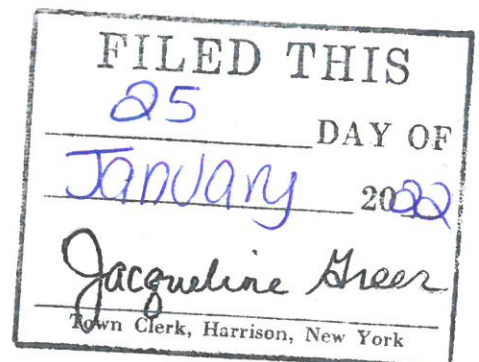 FILED THIS
25
DAY OF
January 2022
Jacqueline Greer
Town Clerk, Harrison, New York